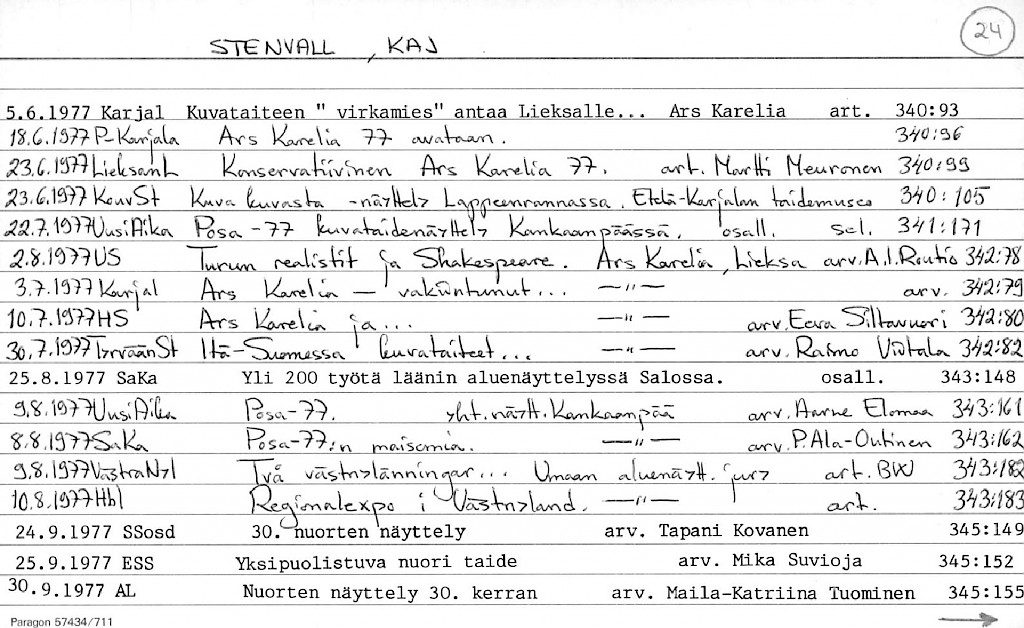 24
STENVALL, KAJ
5.6.1977 Karjal Kuvataiteen " virkamies" antaa Lieksalle... Ars Karelia art. 340:93
18.6.1977 P-Karjala Ars Karelia 77 avataan. 340:96
23.6.1977 LieksanL Konservatiivinen Ars Karelia 77. art. Martti Meuronen 340:99
23.6.1977 KouvSt Kuva kuvasta -näyttely Lappeenrannassa. Etelä-Karjalan taidemuseo 340:105
22.7.1977 UusiAika Posa-77 kuvataidenäyttely Kankaanpäässä. osall. sel. 341:171
2.8.1977 US Turun realistit ja Shakespeare. Ars Karelia, Lieksa arv. A.I.Routio 342:78
3.7.1977 Karjal Ars Karelia - vakiintunut... -"- arv. 342:79
10.7.1977 HS Ars Karelia ja... -"- arv. Eeva Siltavuori 342:80
30.7.1977 TyrväänSt Itä-Suomessa kuvataiteet... -"- arv. Raimo Viitala 342:82
25.8.1977 SaKa Yli 200 työtä läänin aluenäyttelyssä Salossa. osall. 343:148
9.8.1977 UusiAika Posa-77. yht.näytt. Kankaanpää arv. Aarne Elomaa 343:161
8.8.1977 SaKa Posa-77:n maisemia. -"- arv. P.Ala-Outinen 343:162
9.8.1977 VästraNyl Två västnylänningar... Umaan aluenäytt. jury art. BW 343:182
10.8.1977 Hbl Regionalexpo i Västnyland. -"- art. 343:183
24.9.1977 SSosd 30. nuorten näyttely arv. Tapani Kovanen 345:149
25.9.1977 ESS Yksipuolistuva nuori taide arv. Mika Suvioja 345:152
30.9.1977 AL Nuorten näyttely 30. kerran arv. Maila-Katriina Tuominen 345:155
Paragon 57434/711